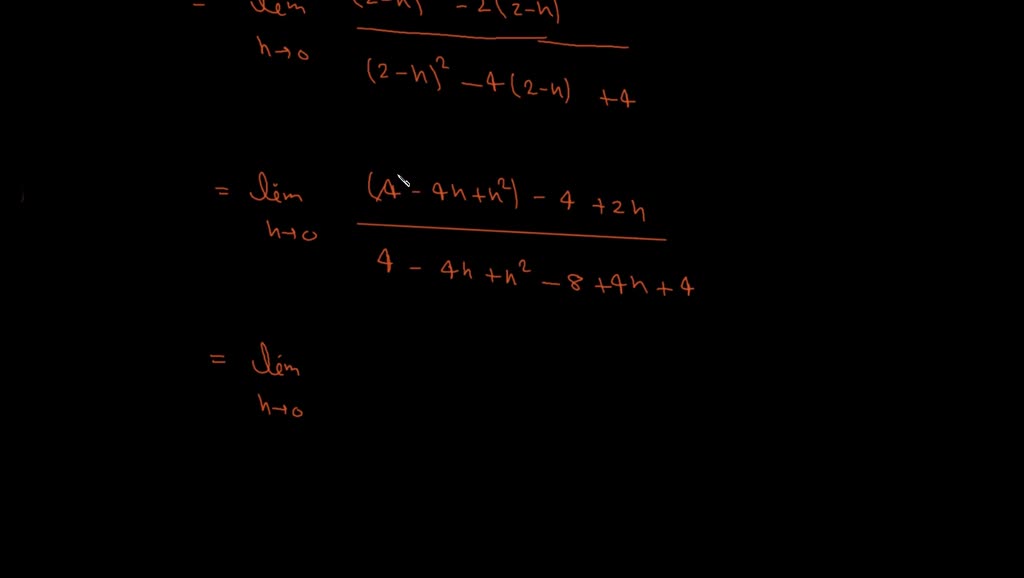 = lim (2-h)² - 2(2-h)
h→0 (2-h)² - 4(2-h) + 4
= lim (4 - 4h + h²) - 4 + 2h
h→0 4 - 4h + h² - 8 + 4h + 4
= lim
h→0